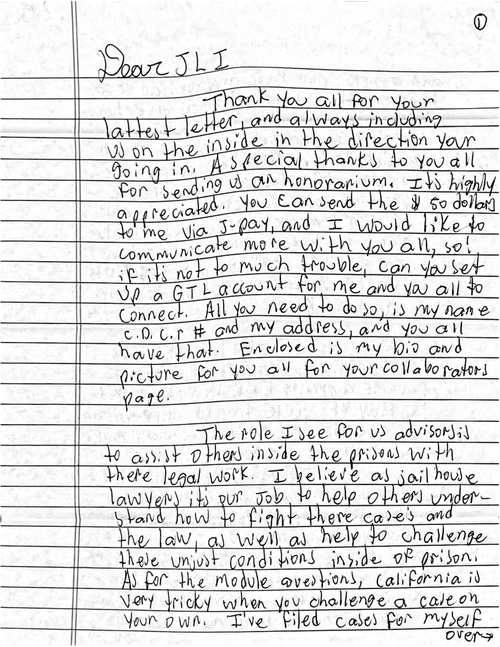 ①
Dear JLI
Thank you all for your
lattest letter, and always including
us on the inside in the direction your
going in. A special thanks to you all
for sending us an honorarium. It's highly
appreciated. You can send the $ 50 dollars
to me via J-pay, and I would like to
communicate more with you all, so!
if its not to much trouble, can you set
up a GTL account for me and you all to
connect. All you need to do so, is my name
C.D.C.r # and my address, and you all
have that. Enclosed is my bio and
picture for you all for your collaborators
page.
The role I see for us advisors is
to assist others inside the prisons with
there legal work. I believe as jailhouse
lawyers its our job to help others under-
stand how to fight there case's and
the law, as well as help to challenge
these unjust conditions inside of prison.
As for the module questions, California is
very tricky when you challenge a case on
your own. I've filed cases for myself
over→